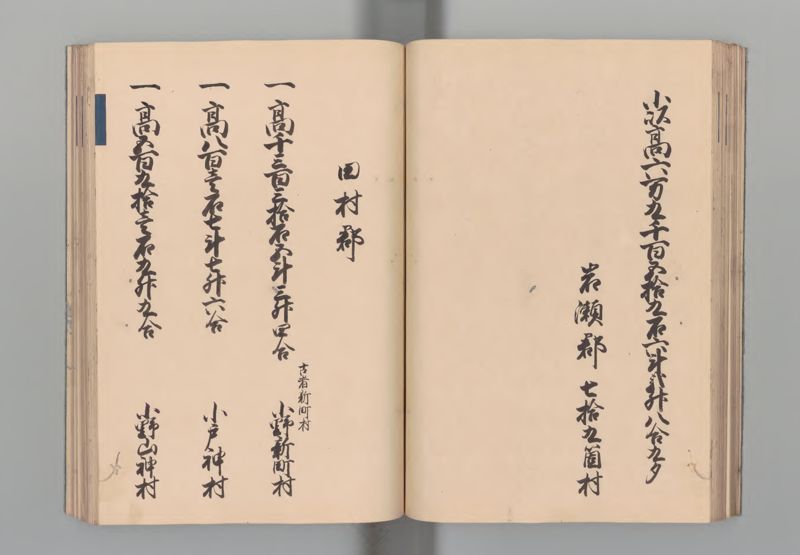 小以高六万九千百五拾九石六斗弐升八合九夕
岩瀬郡 七拾九箇村
田村郡
一高千三百三拾石五斗三升四合 古者新町村 小野新町村
一高八百壱石七斗七升六合 小戸神村
一高五百九拾壱石九升九合 小野山神村